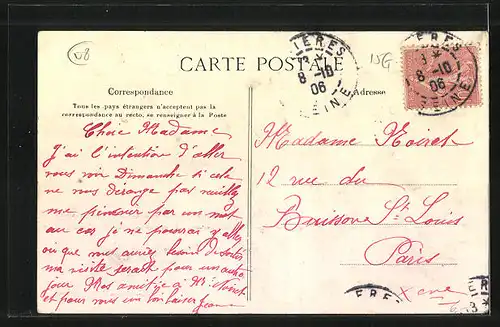 V8
CARTE POSTALE
15G
IÈRES
8-10
06
SEINE
8-10
06
EINE
Correspondance
Adresse
Tous les pays étrangers n'acceptent pas la
correspondance au recto, se renseigner à la Poste
Chère Madame
J'ai l'intention d'aller
vous voir Dimanche si cela
ne vous dérange pas veuillez
me prévenir par un mot
au cas je ne pourrai y aller
où que vous auriez besoin de sortir
ma visite serait pour un autre
jour Mes amitiés à Mr Noiret
et pour vous un bon baiser Jeanne
Madame Noiret
12 rue du
Buisson St Louis
Paris
Xème